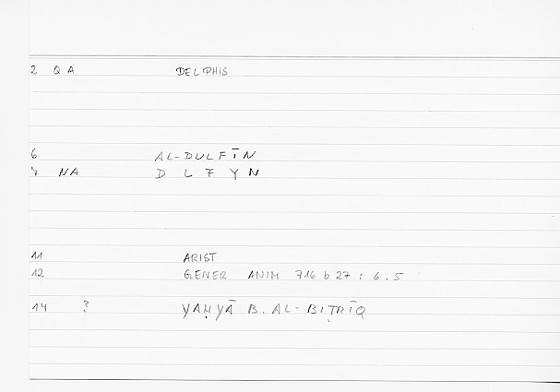 2 QA DELPHIS
6 AL-DULFĪN
7 NA D L F Y N
11 ARIST
12 GENER ANIM 716 b 27 : 6.5
14 ? YAḤYĀ B. AL-BIṬRĪQ